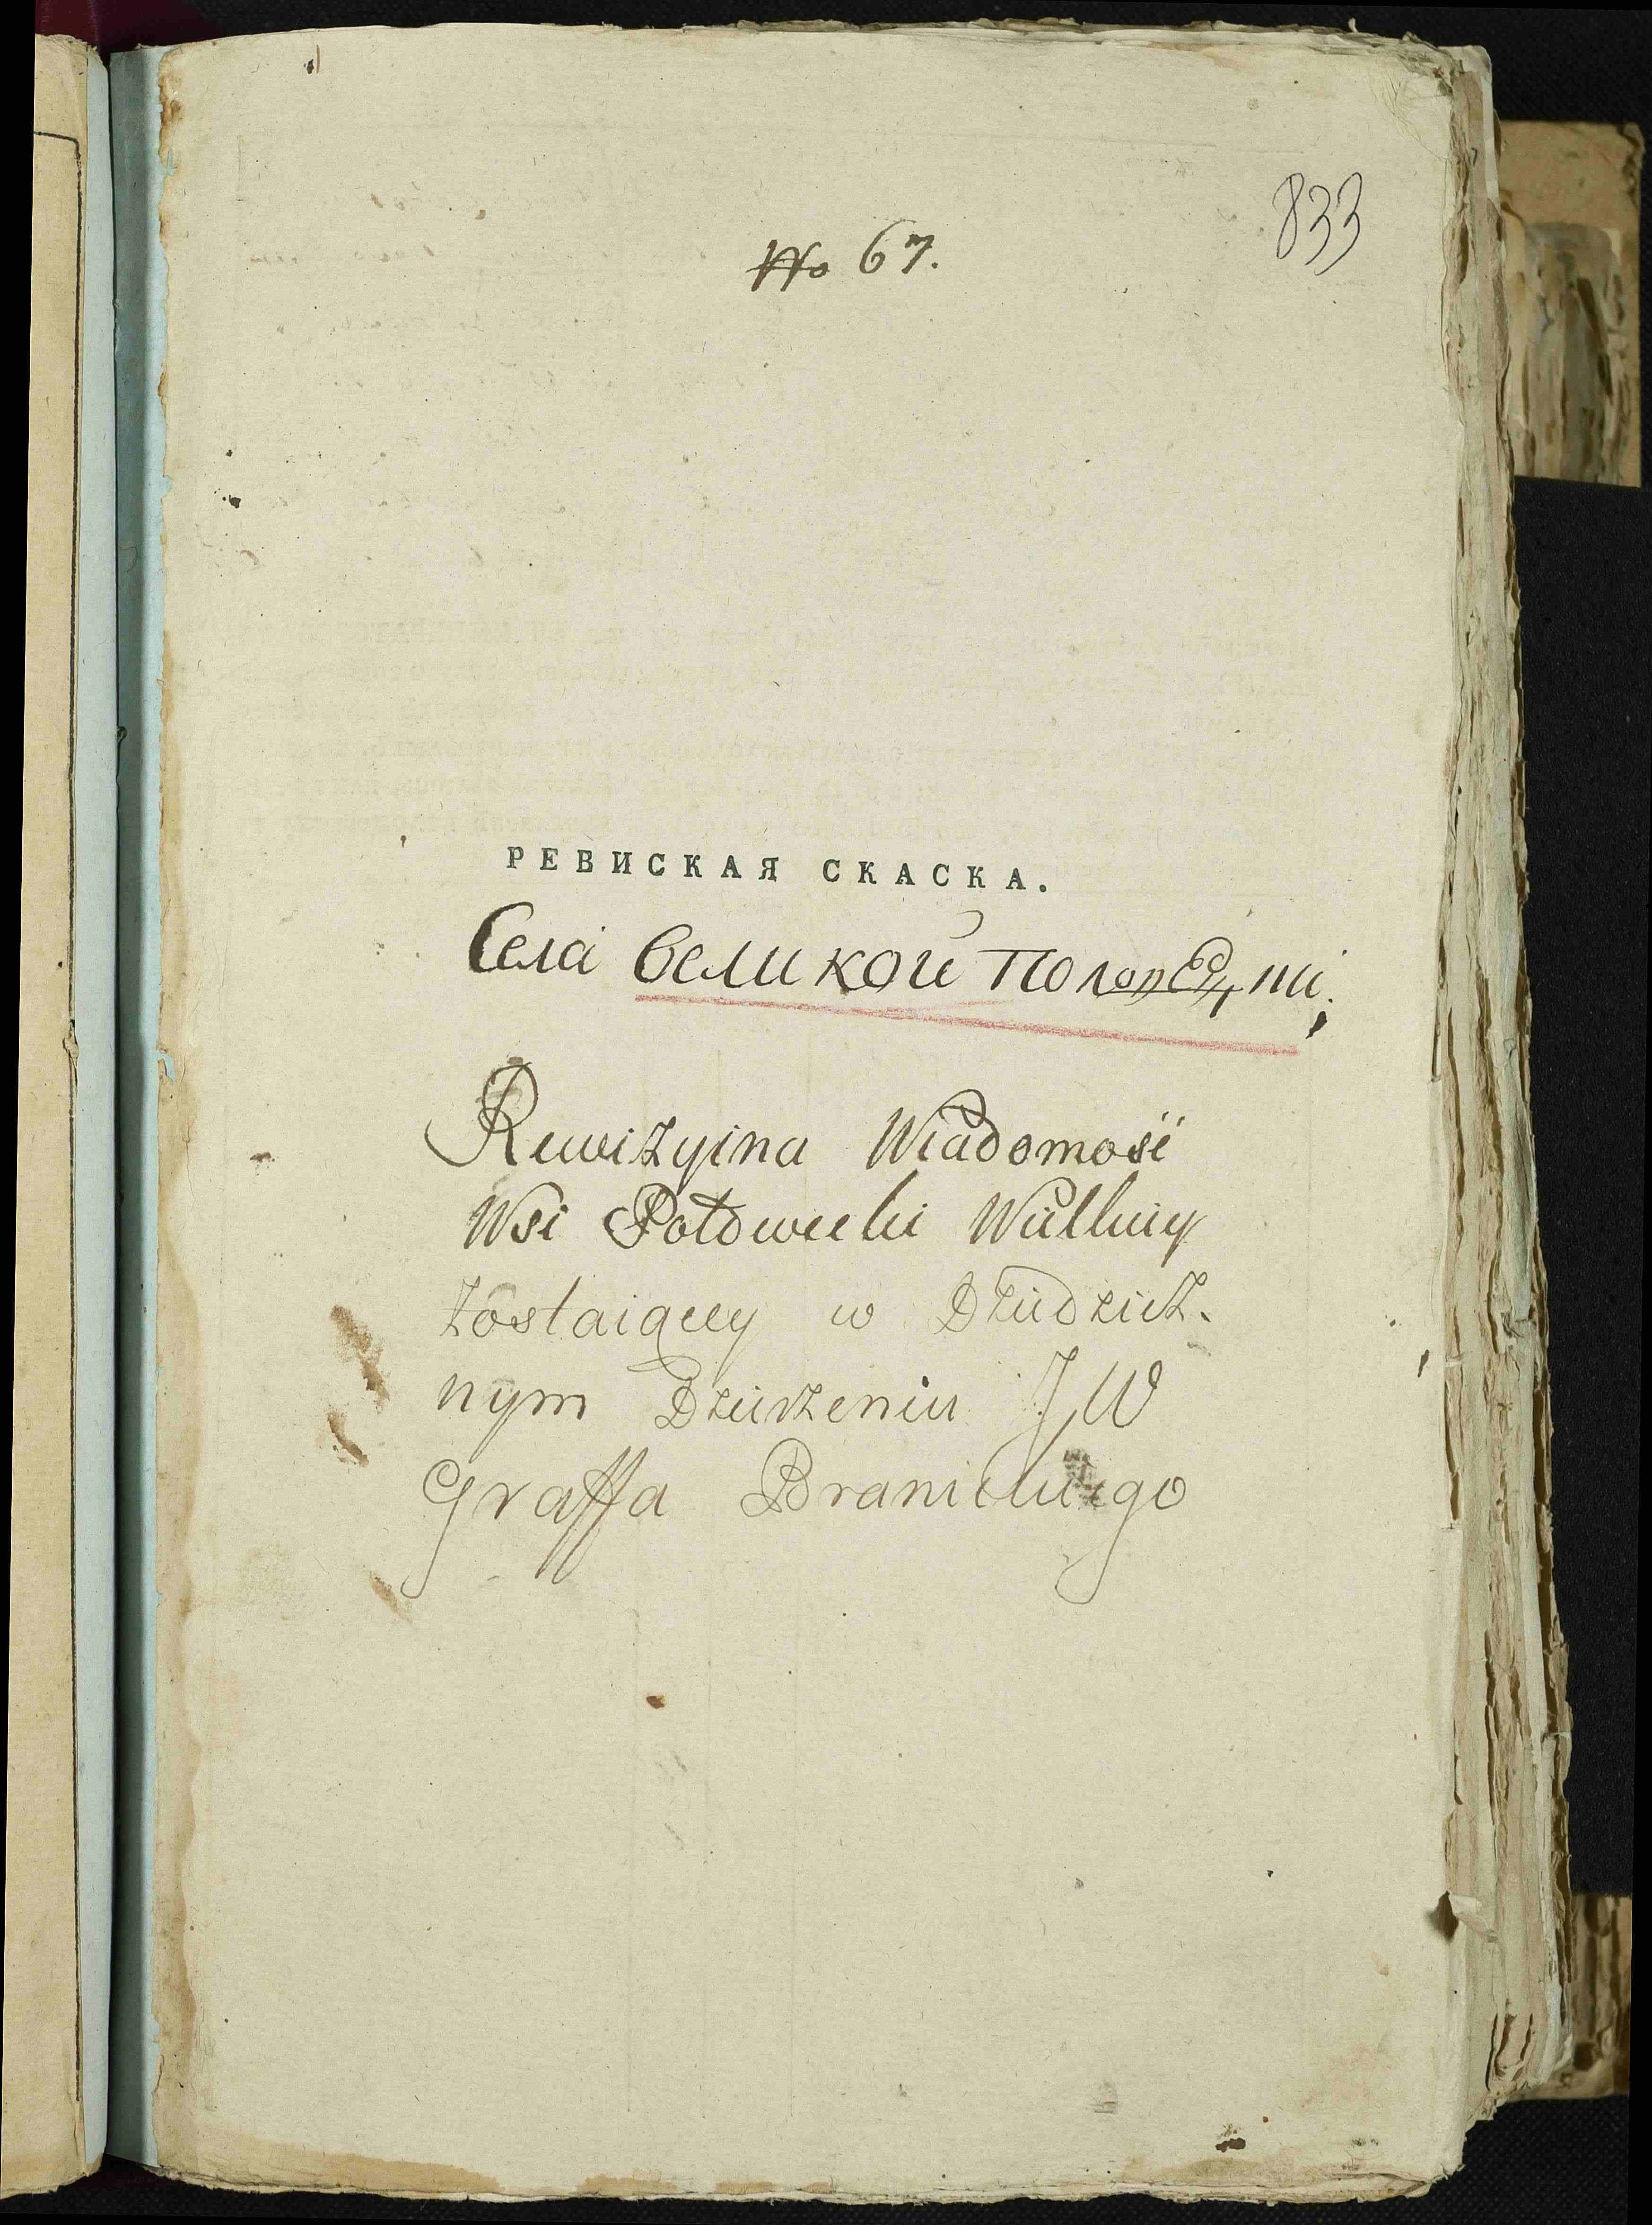 833
No 67.
РЕВИСКАЯ СКАСКА.
Села великой
Rewizyina Wiadomość
Wsi Połowecki Wielkiey
zostaiącey w Dziedzicz.
nym Dzierżeniu J W
Graffa Branickiego